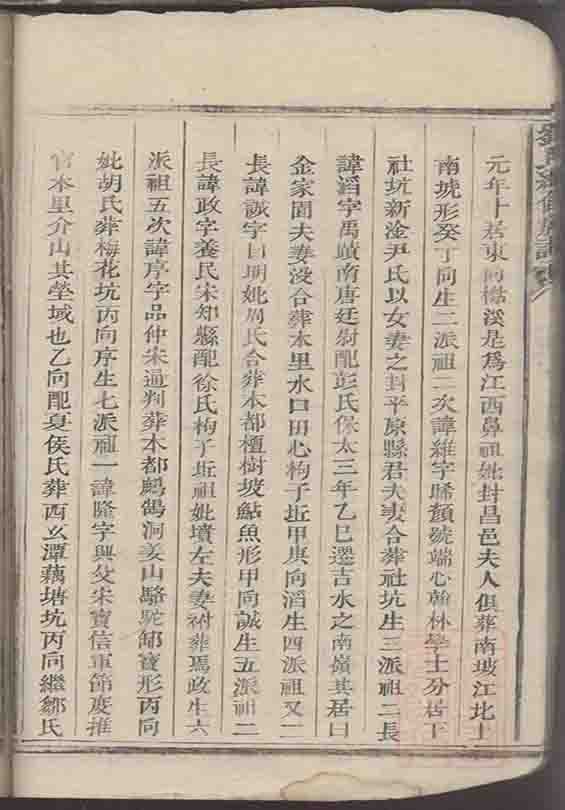 元年卜居東向樵溪是爲江西鼻祖妣封昌邑夫人俱葬南坡江北土
南埦形癸丁向生二派祖二次諱維字晞顏號端心翰林學士分居下
社坑新淦尹氏以女妻之封平原縣君夫妻合葬社坑生三派祖二長
諱滔字禹蹟南唐廷尉配彭氏保太三年乙巳遷吉水之南嶺其居曰
金家園夫妻沒合葬本里水口田心枸子坵甲庚向滔生四派祖又二
長諱誠字日明妣周氏合葬本都檀樹坡鮎魚形甲向誠生五派祖二
長諱政字養民宋知縣配徐氏枸子坵祖妣墳左夫妻祔葬焉政生六
派祖五次諱序字品仲宋通判葬本都鷓鴣洞姜山駱駝卸寶形丙向
妣胡氏葬梅花坑丙向序生七派祖一諱隆字興父宋寶信軍節度推
官本里介山其塋域也乙向配夏侯氏葬西幺潭藕塘坑丙向繼鄒氏